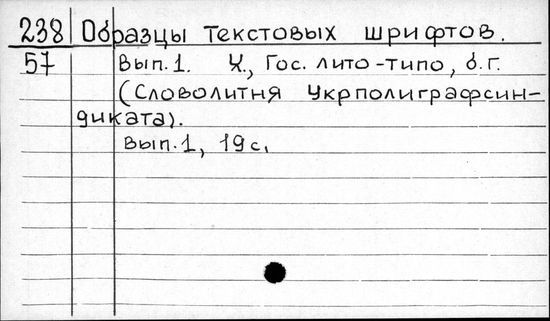 238 Образцы текстовых шрифтов.
57 Вып.1. Х., Гос. лито-типо, б.г.
(Словолитня Укрполиграфсин-
диката).
Вып.1, 19с.